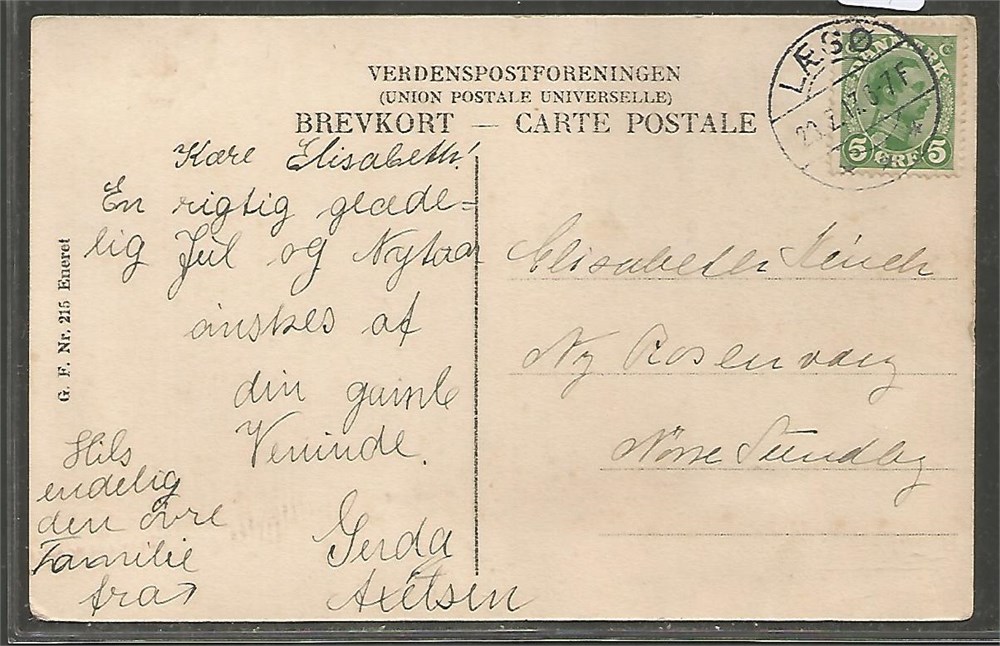 VERDENSPOSTFORENINGEN
(UNION POSTALE UNIVERSELLE)
BREVKORT — CARTE POSTALE
LÆSØ
DANMARK
5 ØRE 5
Kære Elisabeth!
En rigtig glæde-
lig Jul og Nytaar
ønskes af
din gamle
Veninde.
Gerda
Axelsen
Hils
endelig
den øvre
Familie
fra
Elisabeth
Ny Rosenvang
Nørre Sundby
G. F. Nr. 215 Eneret